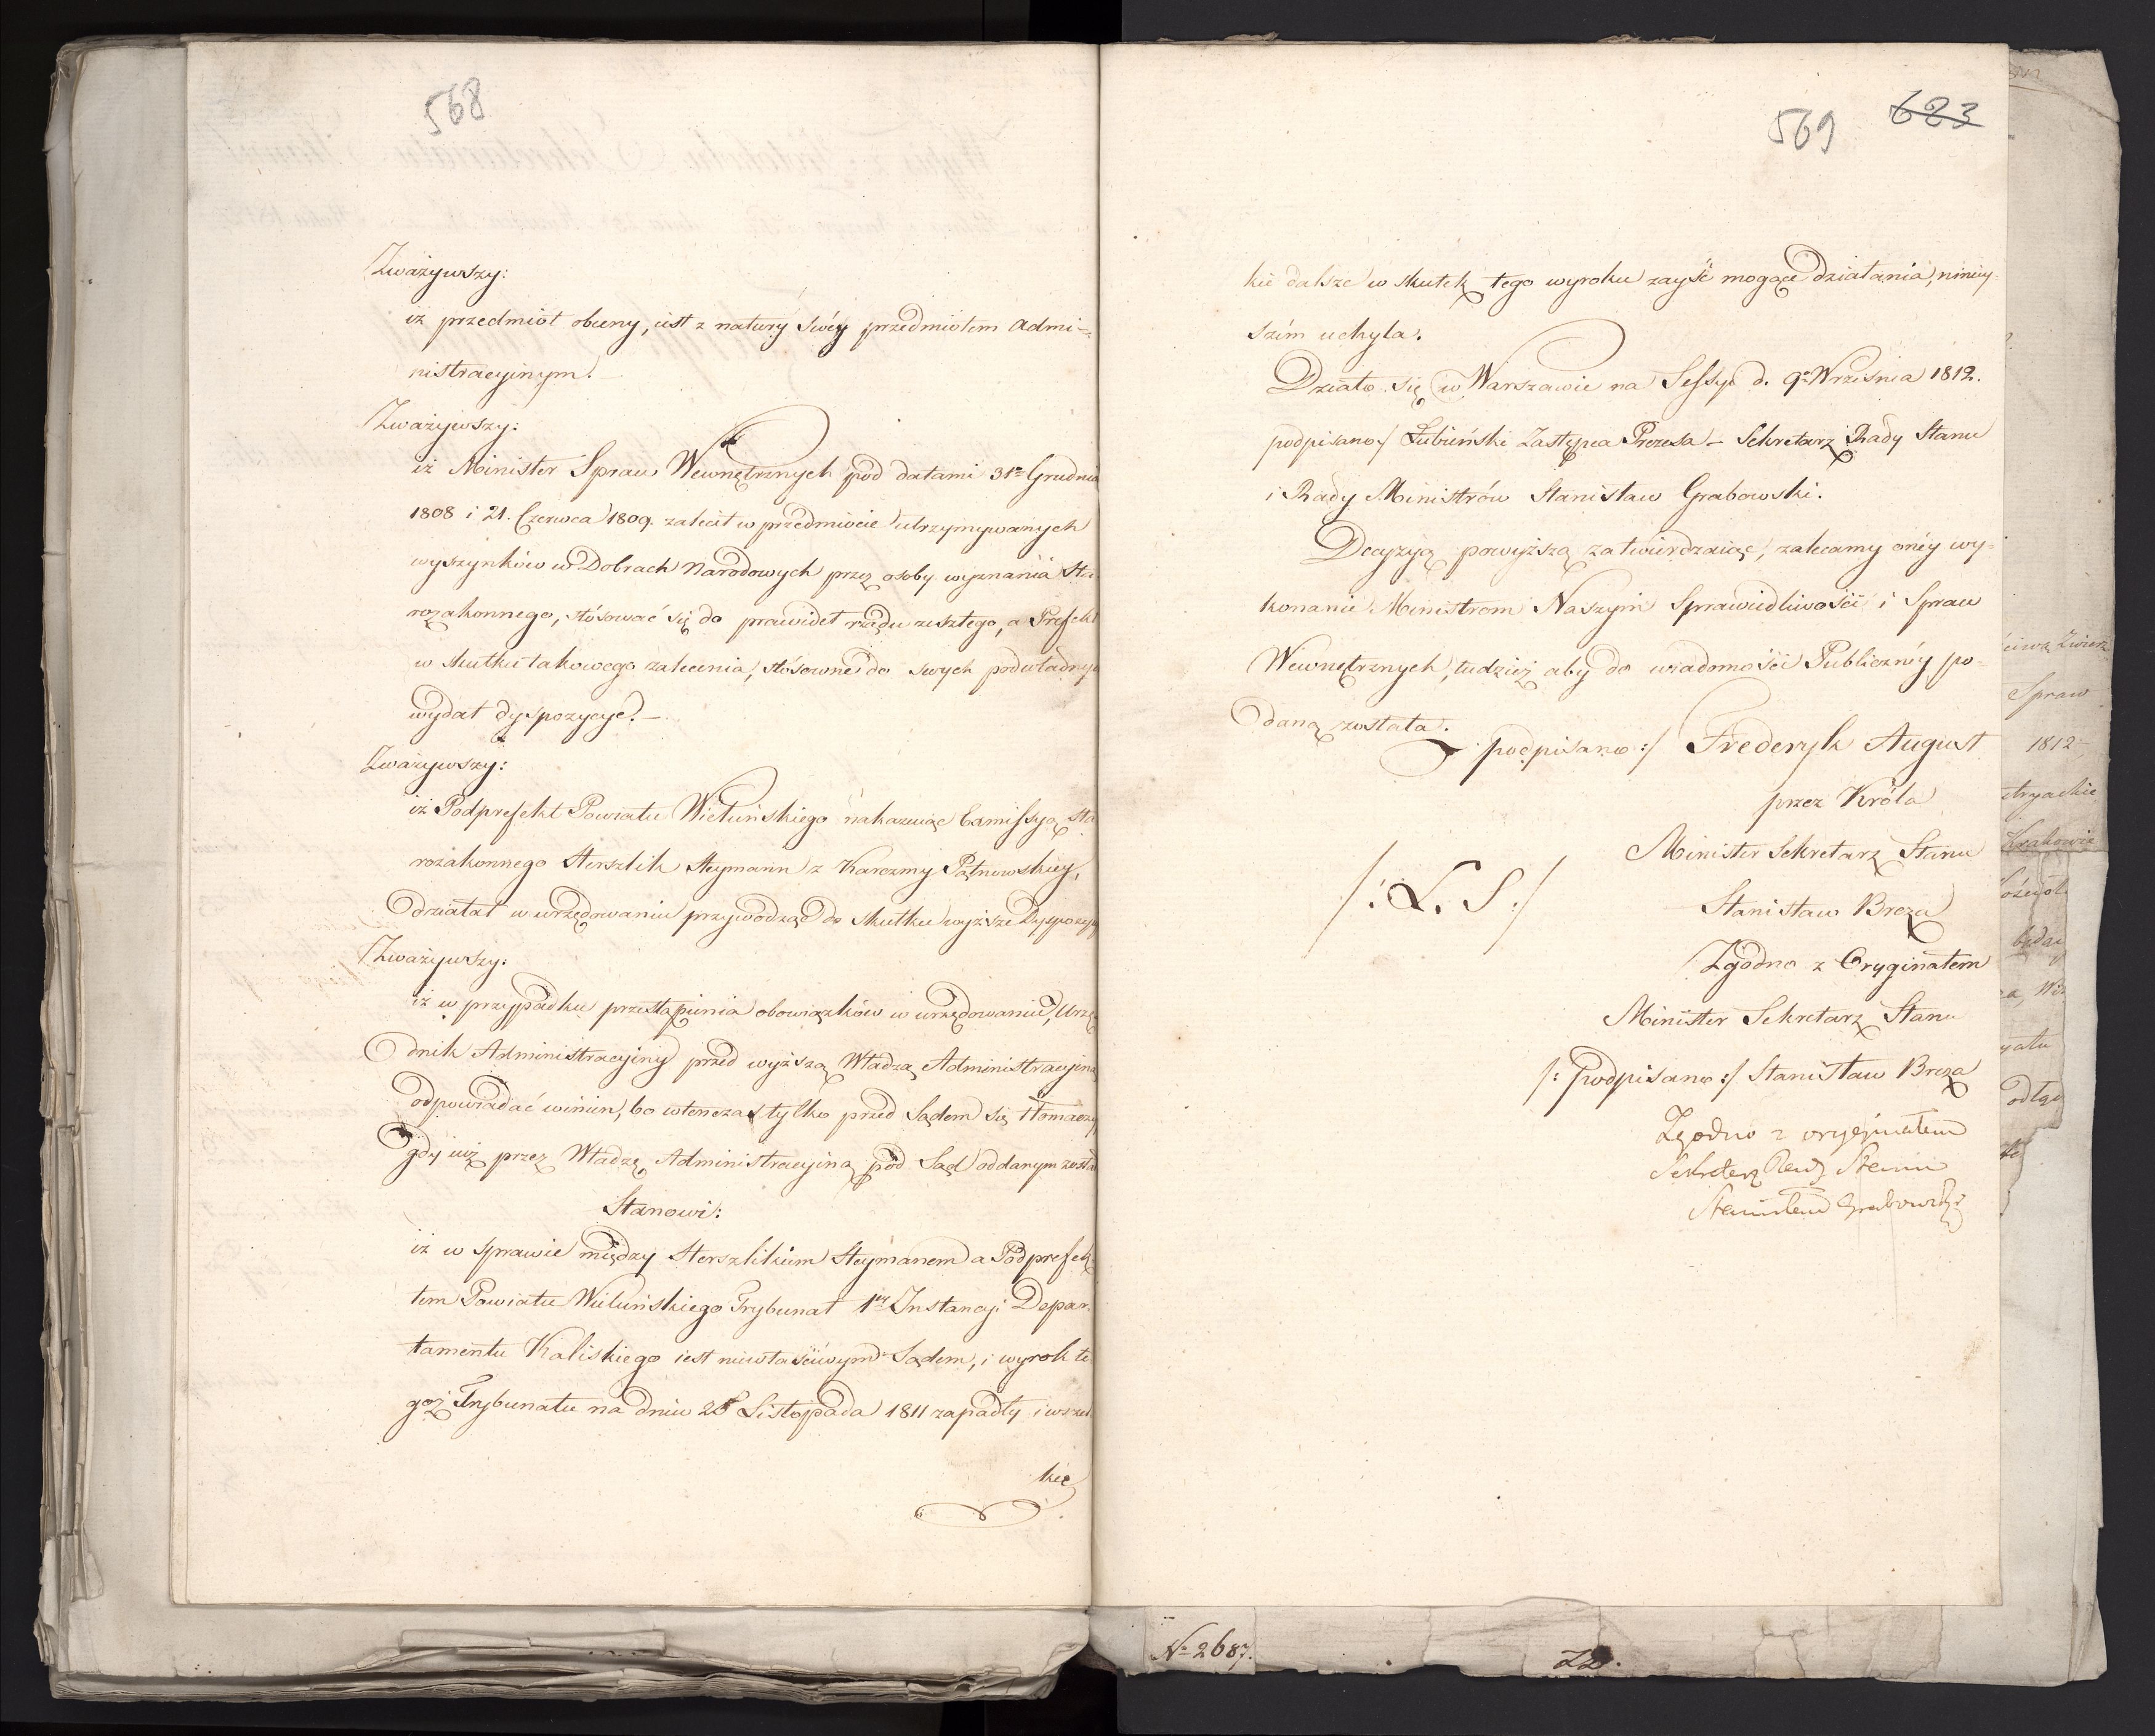 568
Zważywszy:
iż przedmiot obecny, iest z natury swéy przedmiotem Admi-
nistracyinym.
Zważywszy:
iż Minister Spraw Wewnętrznych pod datami 31º Grudnia
1808 i 21. Czerwca 1809. zalecił w przedmiocie utrzymywanych
wyszynków w Dobrach Narodowych przez osoby wyznania Sta-
rozakonnego, stósować się do prawideł rządu zeszłego, a Prefekt
w skutku takowego zalecenia, stósowne do swych podwładnych
wydał dyspozycye. —
Zważywszy:
iż Podprefekt Powiatu Wieluńskiego nakazuiąc Exmissyą sta
rozakonnego Herszlik Heymann z Karczmy Pątnowskiey,
działał w urzędowaniu przywodząc do skutku wyższe Dyspozycye
Zważywszy:
iż w przypadku przestąpienia obowiązków w urzędowaniu, Urzę
dnik Administracyiny przed wyższą Władzą Administracyiną
odpowiadać winien, bo wtenczas tylko przed Sądem się tłomaczy
gdy iuż przez Władzę Administracyiną pod Sąd oddanym został
Stanowi:
iż w sprawie między Herszlikiem Heymanem a Podprefek-
tem Powiatu Wieluńskiego Trybunał 1éy Instancyi Depar-
tamentu Kaliskiego iest niewłaściwym Sądem, i wyrok te
goż Trybunału na dniu Listopada 1811 zapadły i wszel
kie
569 623
kie dalsze w skutek tego wyroku zayść mogące działania, niniey-
szém uchyla.
Działo się w Warszawie na Sessyi d. 9º Września 1812.
podpisano:/ Łubieński Zastępca Prezesa – Sekretarz Rady Stanu
i Rady Ministrów Stanisław Grabowski.
Decyzyą powyższą zatwierdzaiąc, zalecamy onéy wy-
konanie Ministrom Naszym Sprawiedliwości i Spraw
Wewnętrznych, tudzież aby do wiadomości Publicznéy po-
daną została.
podpisano:/ Frederyk August
przez Króla
Minister Sekretarz Stanu
/: L. S :/
Stanisław Breza
Zgodno z Oryginałem
Minister Sekretarz Stanu
/: podpisano :/ Stanisław Breza
Zgodno z oryginałem
Sekretarz Rady Stanu
Stanisław Grabowski
Spraw
1812
Krakowie
№ 2687.